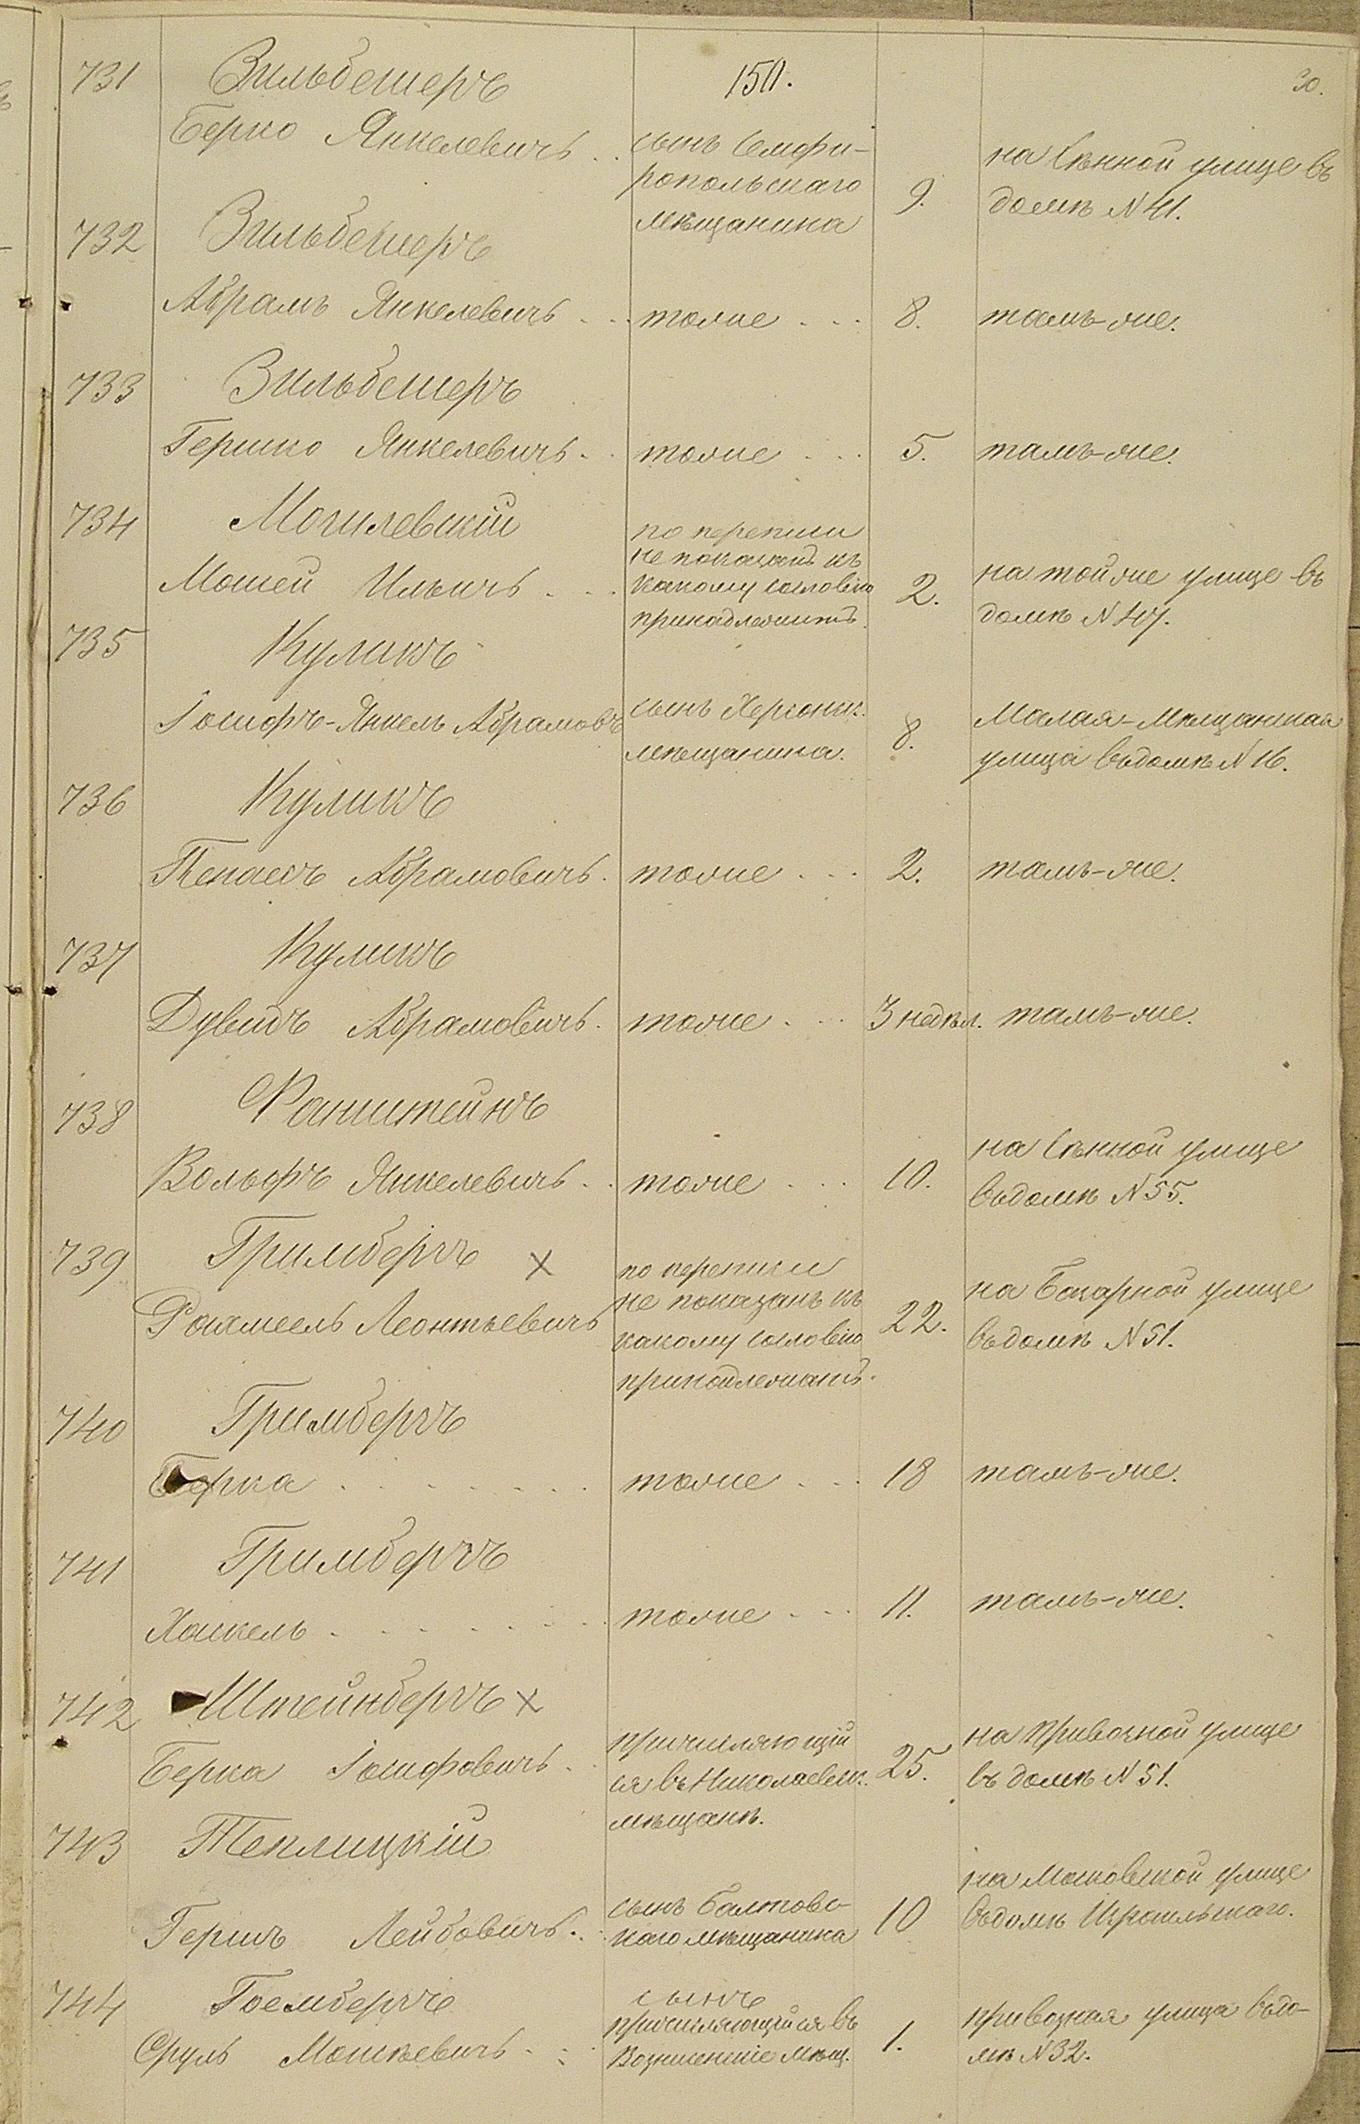 150.
30.
731 Зильбешеръ
Берко Янкелевичъ . . сынъ Симфи-
ропольскаго
мѣщанина 9. на Сѣнной улице въ
домѣ N 41.
732 Зильбешеръ
Абрамъ Янкелевичъ . . . тоже . . . 8. тамъ-же.
733 Зильбешеръ
Гершко Янкелевичъ . . тоже . . . 5. тамъ-же.
734 Могилевскій
Мошей Ильичъ . . . по переписи
не показанъ къ
какому сословію
принадлежитъ. 2. на той же улице въ
домѣ N 47.
735 Куликъ
Іосифъ-Янкель Абрамовъ сынъ Херсонск.
мѣщанина. 8. Малая-Мѣщанская
улица въ домѣ N 16.
736 Куликъ
Абрамовичъ . тоже . . . 2. тамъ-же.
737 Куликъ
Дувидъ Абрамовичъ . тоже . . . 3 недѣл. тамъ-же.
738 Файнштейнъ
Вольфъ Янкелевичъ . . тоже . . . 10. на Сѣнной улице
въ домѣ N 55.
739 Гримбергъ х
Леонтьевичъ по переписи
не показанъ къ
какому сословію
принадлежитъ. 22. на улице
въ домѣ N 51.
740 Гримбергъ
Берка . . . . . . . тоже . . . 18 тамъ-же.
741 Гримбергъ
Хаскель . . . . . . . тоже . . . 11. тамъ-же.
742 Штейнбергъ х
Берка Іосифовичъ . . причисляющій
ся въ Николаевск.
мѣщане. 25. на Привозной улице
въ домѣ N 51.
743 Теплицкій
Гершъ Лейбовичъ . . сынъ Балтовс-
каго мѣщанина 10 на Московской улице
въ домѣ Израильскаго.
744
Сруль Мошкевичъ . . сынъ
причисляющійся въ
Вознесенскіе мѣщ. 1. Привозная улица въ до-
мѣ N 32.